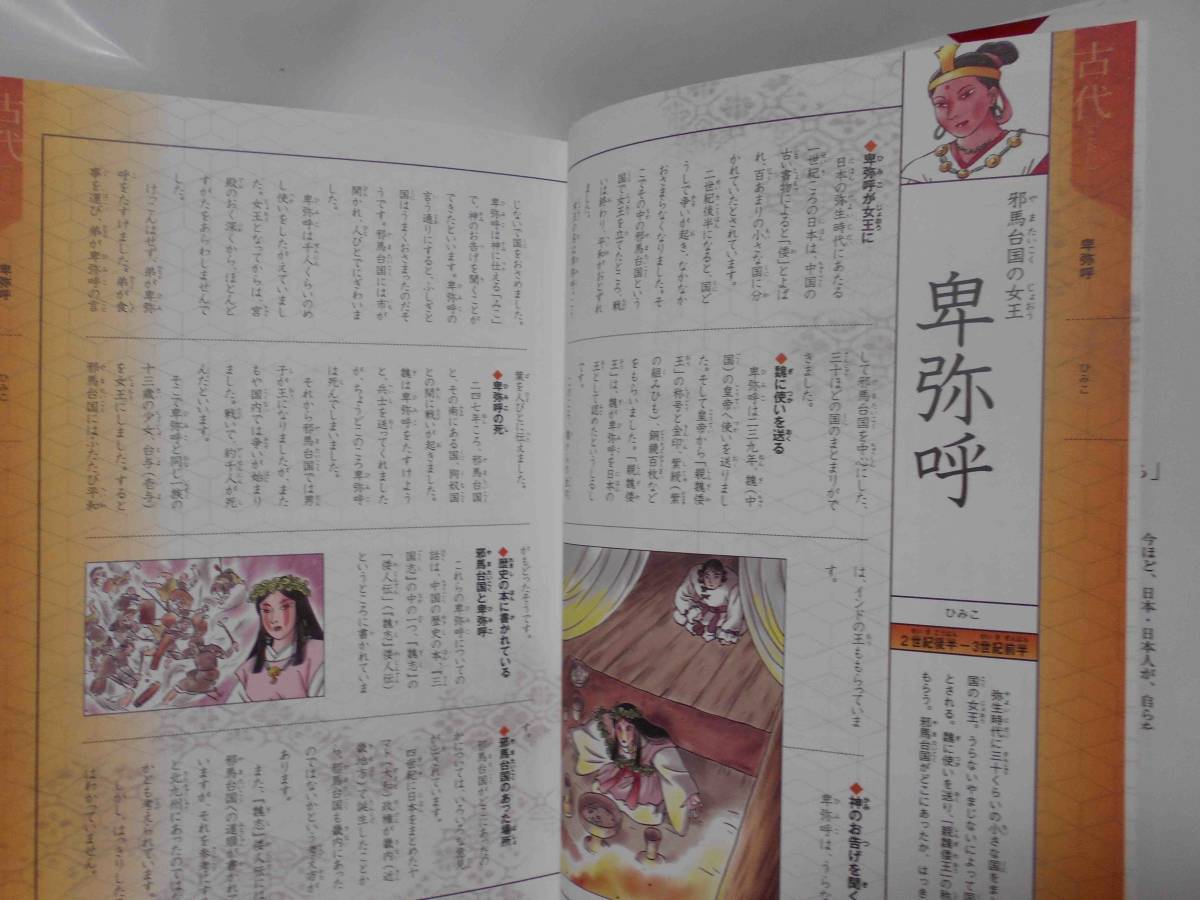 古代
卑弥呼
ひみこ
邪馬台国の女王
卑弥呼
ひみこ
2世紀後半―3世紀前半
弥生時代に三十くらいの小さな国をま
国の女王。うらないやまじないによって国
とされる。魏に使いを送り、「親魏倭王」の称
もらう。邪馬台国がどこにあったか、はっき
◆卑弥呼が女王に
日本の弥生時代にあたる
一世紀ころの日本は、中国の
古い書物によると「倭」とよば
れ、百あまりの小さな国に分
かれていたとされています。
二世紀後半になると、国ど
うしで争いが起き、なかなか
おさまらなくなりました。そ
こでその中の邪馬台国という
国で女王を立てたところ、戦
いは終わり、平和がおとずれ
ました。
して邪馬台国を中心にした、
三十ほどの国のまとまりがで
きました。
◆魏に使いを送る
卑弥呼は二三九年、魏(中
国)の皇帝へ使いを送りまし
た。そして皇帝から「親魏倭
王」の称号と金印、紫綬(紫
の組みひも)、銅鏡百枚など
をもらいました。「親魏倭
王」は、魏が卑弥呼を日本の
王として認めたというしるし
です。
は、インドの王ももらっていま
す。
◆神のお告げを聞く
卑弥呼は、うらな
じないで国をおさめました。
卑弥呼は神に仕える「みこ」
で、神のお告げを聞くことが
できたといいます。卑弥呼の
言う通りにすると、ふしぎと
国はうまくおさまったのだそ
うです。邪馬台国には市が
開かれ、人びとでにぎわいま
した。
卑弥呼は千人くらいのめ
し使いをしたがえていまし
た。女王となってからは、宮
殿のおく深くから、ほとんど
すがたをあらわしませんで
した。
けっこんはせず、弟が卑弥
呼をたすけました。弟が食
事を運び、弟が卑弥呼の言
葉を人びとに伝えました。
◆卑弥呼の死
二四七年ころ、邪馬台国
と、その南にある国、狗奴国
との間に戦いが起きました。
魏は卑弥呼をたすけよう
と、兵士を送ってくれました
が、ちょうどこのころ卑弥呼
は死んでしまいました。
それから邪馬台国では男
子が王になりましたが、また
もや国内で争いが始まり
ました。戦いで、約千人が死
んだといいます。
そこで卑弥呼と同じ一族の
十三歳の少女、台与(壱与)
を女王にしました。すると
邪馬台国にはふたたび平和
がもどったそうです。
◆歴史の本に書かれている
邪馬台国と卑弥呼
これらの卑弥呼についての
話は、中国の歴史の本、『三
国志』の中の一つ、『魏志』の
「倭人伝」(『魏志』倭人伝)
というところに書かれていま
す。
◆邪馬台国のあった場所
邪馬台国がどこにあったの
かについては、いろいろな意見
が出されています。
四世紀に日本をまとめたヤ
マト(大和)政権が畿内(近
畿地方)で誕生したことか
ら、邪馬台国も畿内にあった
のではないかという考え方が
あります。
また、『魏志』倭人伝には
邪馬台国への道順が書かれて
いますが、それを参考にす
ると北九州にあったのではな
いかとも考えられています。
しかし、はっきりした
はわかっていません。
古代
卑弥呼
ひみこ
今ほど、日本・日本人が、自らを